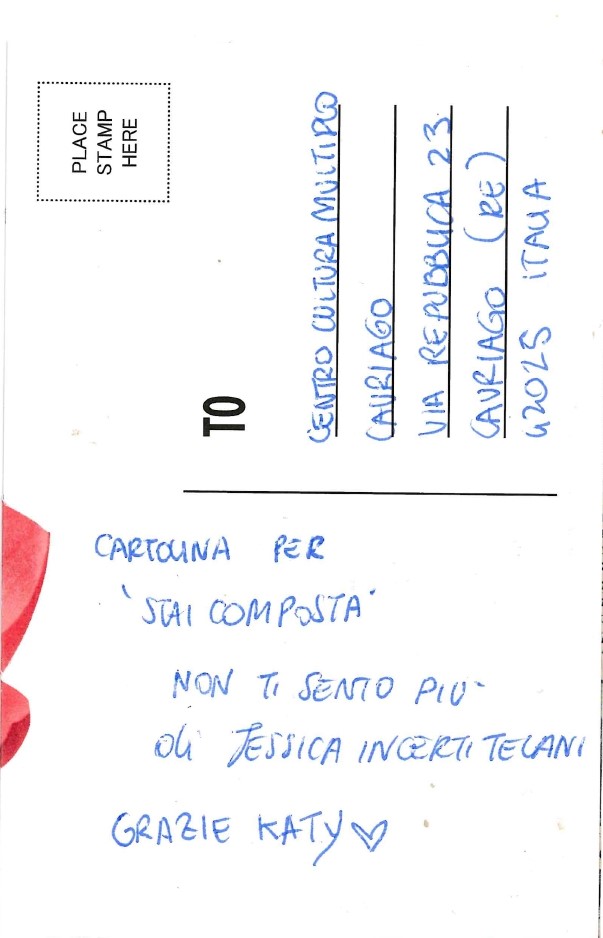 PLACE
STAMP
HERE
TO
CENTRO CULTURA MULTIPLO
CAVRIAGO
VIA REPUBBLICA 23
CAVRIAGO (RE)
42025 ITALIA
CARTOLINA PER
"STAI COMPOSTA"
NON TI SENTO PIU'
di JESSICA INCERTI TELANI
GRAZIE KATY ♡